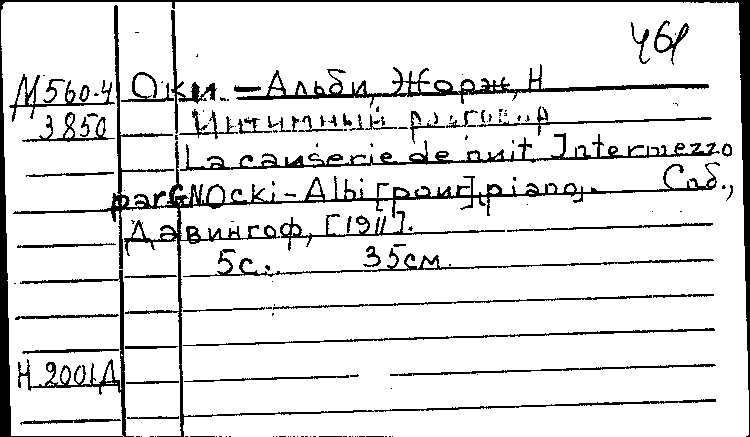 461
М560-4 Оки - Альби, Жорж, Н
3850 Интимный разговор
La causerie de nuit. Intermezzo
par GNOcki-Albi [pour] piano. Спб.,
Давингоф, [1911].
5с. 35см.
Н.2001Д